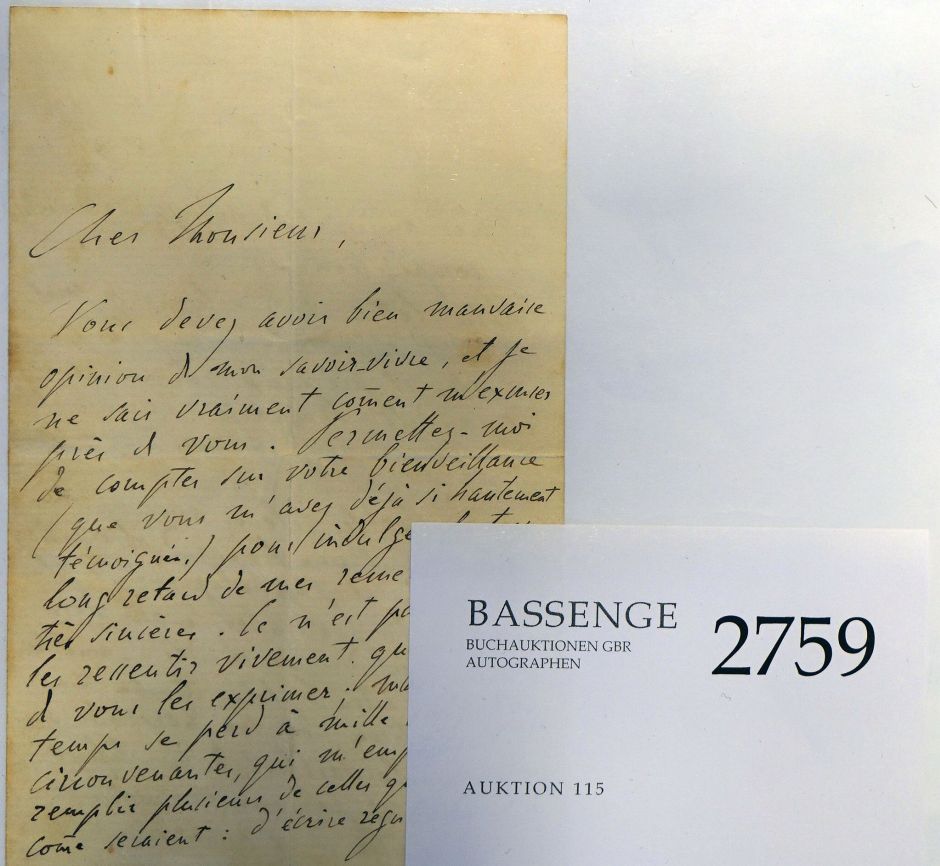 Cher Monsieur,
Vous devez avoir bien mauvaise
opinion de mon savoir-vivre, et je
ne sais vraiment coment m'excuser
près de vous. Permettez-moi
de compter sur votre bienveillance
(que vous m'avez déjà si hautement
témoignée,) pour
long retard de mes
très sincères. Ce n'est
les ressentir vivement
de vous les exprimer;
temps se perd à mille
qui
remplir plusieurs de celles
come seraient: d'écrire
BASSENGE
BUCHAUKTIONEN GBR
AUTOGRAPHEN
2759
AUKTION 115